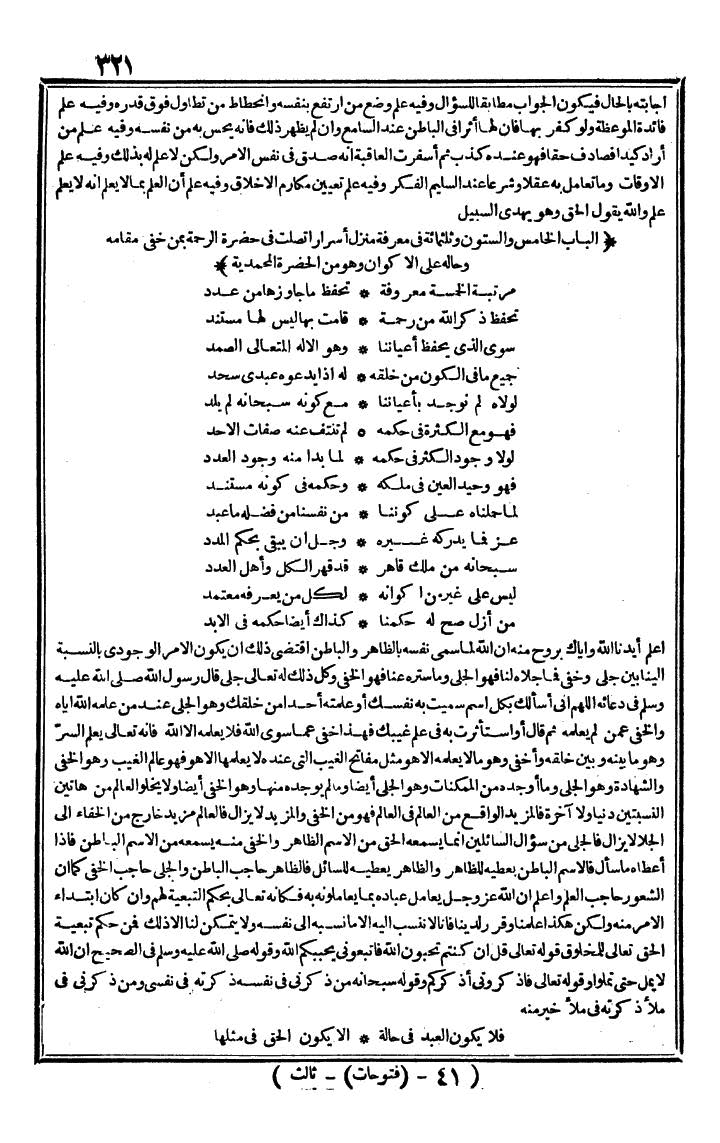 ٣٢١
اجابته بالحال فيكون الجواب مطابقا للسؤال وفيه علم وضع من ارتفع بنفسه وانحطاط من تطاول فوق قدره وفيه علم
فائدة الموعظة ولو كفر بها فان لها أثرا في الباطن عند السامع وان لم يظهر ذلك فانه يحس به من نفسه وفيه علم من
أراد كيدا فصادف حقا فهو عنده كذب ثم أسفرت العاقبة انه صدق في نفس الامر ولكن لا علم له بذلك وفيه علم
الاوقات وما تعامل به عقلا وشرعا عند السليم الفكر وفيه علم تعيين مكارم الاخلاق وفيه علم أن العلم بما لا يعلم انه لا يعلم
علم والله يقول الحق وهو يهدى السبيل
﴿ الباب الخامس والستون وثلثمائة في معرفة منزل أسرار اتصلت في حضرة الرحمة بمن خفى مقامه
وحاله على الاكوان وهو من الحضرة المحمدية ﴾
مرتبة الخمسة معروفة * تحفظ ما جاوزها من عدد
تحفظ ذكر الله من رحمة * قامت بها ليس لها مستند
سوى الذى يحفظ أعياننا * وهو الاله المتعالى الصمد
جميع ما في الكون من خلقه * له اذا يدعوه عبدى سجد
لولاه لم نوجد بأعياننا * مع كونه سبحانه لم يلد
فهو مع الكثرة في حكمه * لم تنتف عنه صفات الاحد
لولا وجود الكثر في حكمه * لما بدا منه وجود العدد
فهو وحيد العين في ملكه * وحكمه في كونه مستند
لما حملناه على كوننا * من نفسنا من فضله ما عبد
عز فما يدركه غيره * وجل ان يبقى بحكم المدد
سبحانه من ملك قاهر * قد قهر الكل وأهل العدد
ليس على غيرن اكوانه * لكل من يعرفه معتمد
من أزل صح له حكمنا * كذاك أيضا حكمه في الابد
اعلم أيدنا الله واياك بروح منه ان الله لما سمى نفسه بالظاهر والباطن اقتضى ذلك ان يكون الامر الوجودى بالنسبة
الينا بين جلى وخفى فما جلاه لنا فهو الجلى وما ستره عنا فهو الخفى وكل ذلك له تعالى جلى قال رسول الله صلى الله عليه
وسلم في دعائه اللهم انى أسألك بكل اسم سميت به نفسك أو علمته أحدا من خلقك وهو الجلى عند من علمه الله اياه
والخفى عمن لم يعلمه ثم قال أو استأثرت به في علم غيبك فهذا خفى عما سوى الله فلا يعلمه الا الله فانه تعالى يعلم السرّ
وهو ما بينه وبين خلقه وأخفى وهو ما لا يعلمه الا هو مثل مفاتح الغيب التى عنده لا يعلمها الا هو فهو عالم الغيب وهو الخفى
والشهادة وهو الجلى وما أوجده من الممكنات وهو الجلى أيضا وما لم يوجده منها وهو الخفى أيضا ولا يخلو العالم من هاتين
النسبتين دنيا ولا آخرة فالمزيد الواقع من العالم في العالم فهو من الخفى والمزيد لا يزال فالعالم مزيد خارج من الخفاء الى
الجلا لا يزال فالجلى من سؤال السائلين انما يسمعه الحق من الاسم الظاهر والخفى منه يسمعه من الاسم الباطن فاذا
أعطاه ما سأل فالاسم الباطن يعطيه للظاهر والظاهر يعطيه للسائل فالظاهر حاجب الباطن والجلى حاجب الخفى كما ان
الشعور حاجب العلم واعلم ان الله عز وجل يعامل عباده بما يعاملونه به فكانه تعالى بحكم التبعية لهم وان كان ابتداء
الامر منه ولكن هكذا علمنا وقرر لدينا فانا لا ننسب اليه الا ما نسبه الى نفسه ولا يتمكن لنا الا ذلك فمن حكم تبعية
الحق تعالى للمخلوق قوله تعالى قل ان كنتم تحبون الله فاتبعونى يحببكم الله وقوله صلى الله عليه وسلم في الصحيح ان الله
لا يمل حتى تملوا وقوله تعالى فاذكرونى أذكركم وقوله سبحانه من ذكرنى في نفسه ذكرته في نفسى ومن ذكرنى في
ملأ ذكرته في ملأ خير منه
فلا يكون العبد في حالة * الا يكون الحق في مثلها
( ٤١ - (فتوحات) - ثالث )